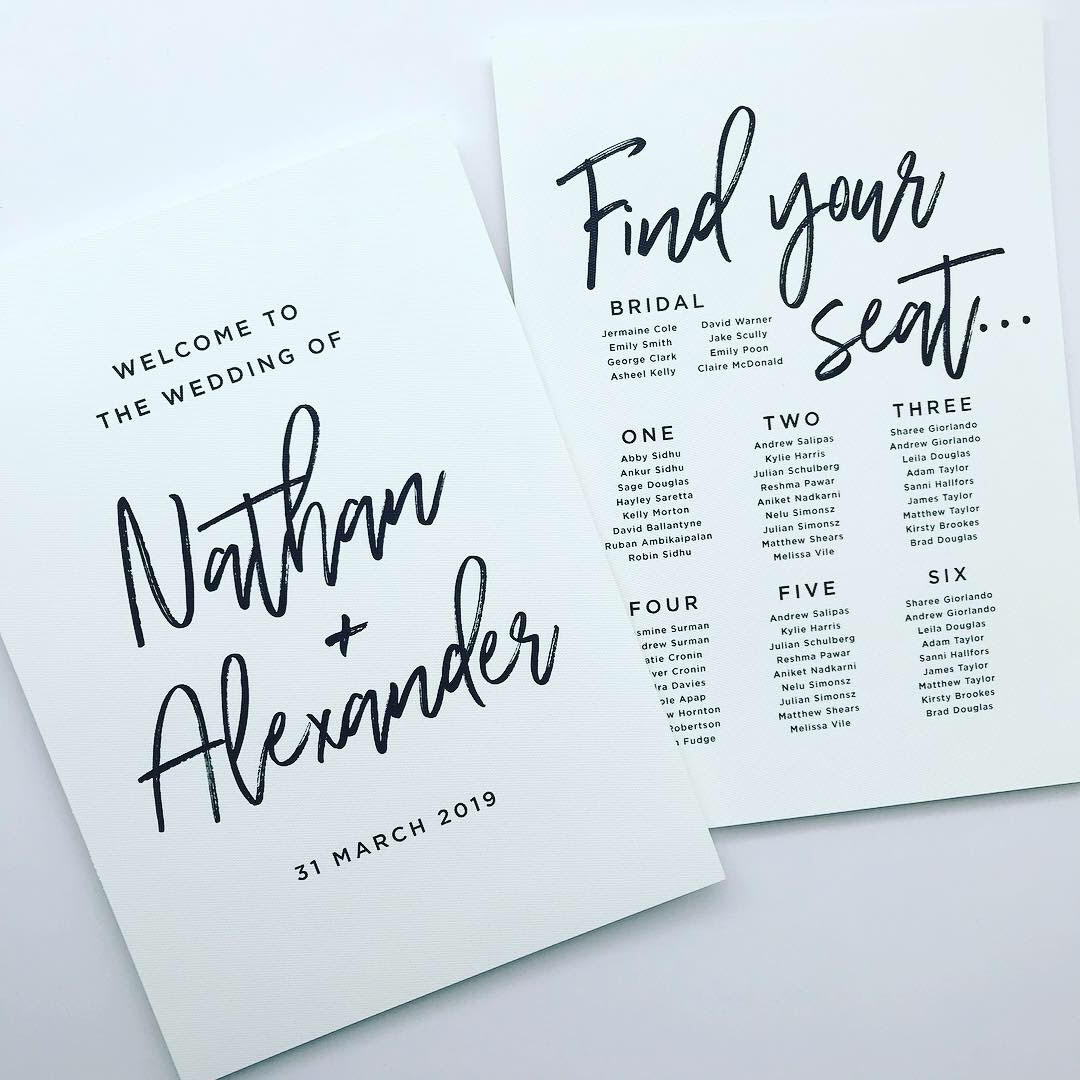 WELCOME TO
THE WEDDING OF
Nathan
+
Alexander
31 MARCH 2019
Find your
seat...
BRIDAL
Jermaine Cole
Emily Smith
George Clark
Asheel Kelly
David Warner
Jake Scully
Emily Poon
Claire McDonald
ONE
Abby Sidhu
Ankur Sidhu
Sage Douglas
Hayley Saretta
Kelly Morton
David Ballantyne
Ruban Ambikaipalan
Robin Sidhu
TWO
Andrew Salipas
Kylie Harris
Julian Schulberg
Reshma Pawar
Aniket Nadkarni
Nelu Simonsz
Julian Simonsz
Matthew Shears
Melissa Vile
THREE
Sharee Giorlando
Andrew Giorlando
Leila Douglas
Adam Taylor
Sanni Hallfors
James Taylor
Matthew Taylor
Kirsty Brookes
Brad Douglas
FOUR
Surman
Surman
Cronin
Cronin
Davies
Apap
Hornton
Robertson
Fudge
FIVE
Andrew Salipas
Kylie Harris
Julian Schulberg
Reshma Pawar
Aniket Nadkarni
Nelu Simonsz
Julian Simonsz
Matthew Shears
Melissa Vile
SIX
Sharee Giorlando
Andrew Giorlando
Leila Douglas
Adam Taylor
Sanni Hallfors
James Taylor
Matthew Taylor
Kirsty Brookes
Brad Douglas